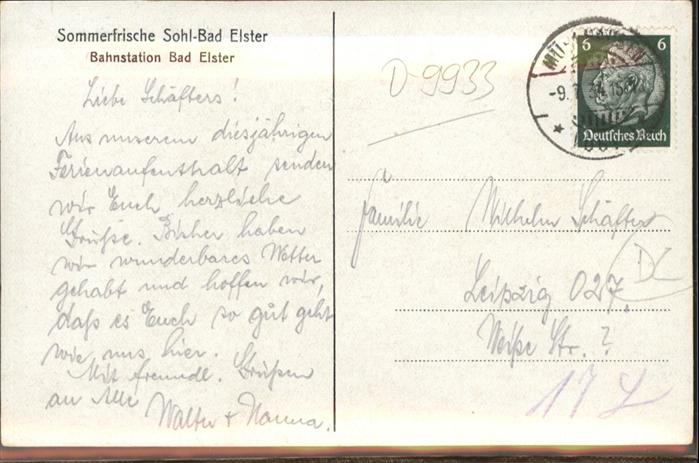 Sommerfrische Sohl-Bad Elster
Bahnstation Bad Elster
Liebe Schäfters!
Aus unserem diesjährigen
Ferienaufenthalt senden
wir Euch herzliche
Grüße. Bisher haben
wir wunderbares Wetter
gehabt und hoffen wir,
daß es Euch so gut geht
wie uns hier.
Mit freundl. Grüßen
an Alle
Walter + Hanna.
D-9933
6 6
-9. 34.15
Deutsches Reich
Familie Wilhelm Schäfter
Leipzig O27.
Weiße Str. ?
17